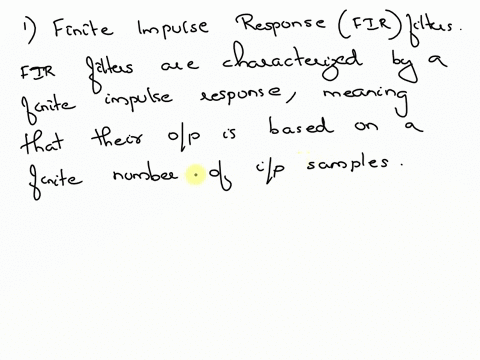 1) Finite Impulse Response (FIR) filters.
FIR filters are characterized by a
finite impulse response, meaning
that their o/p is based on a
finite number of i/p samples.